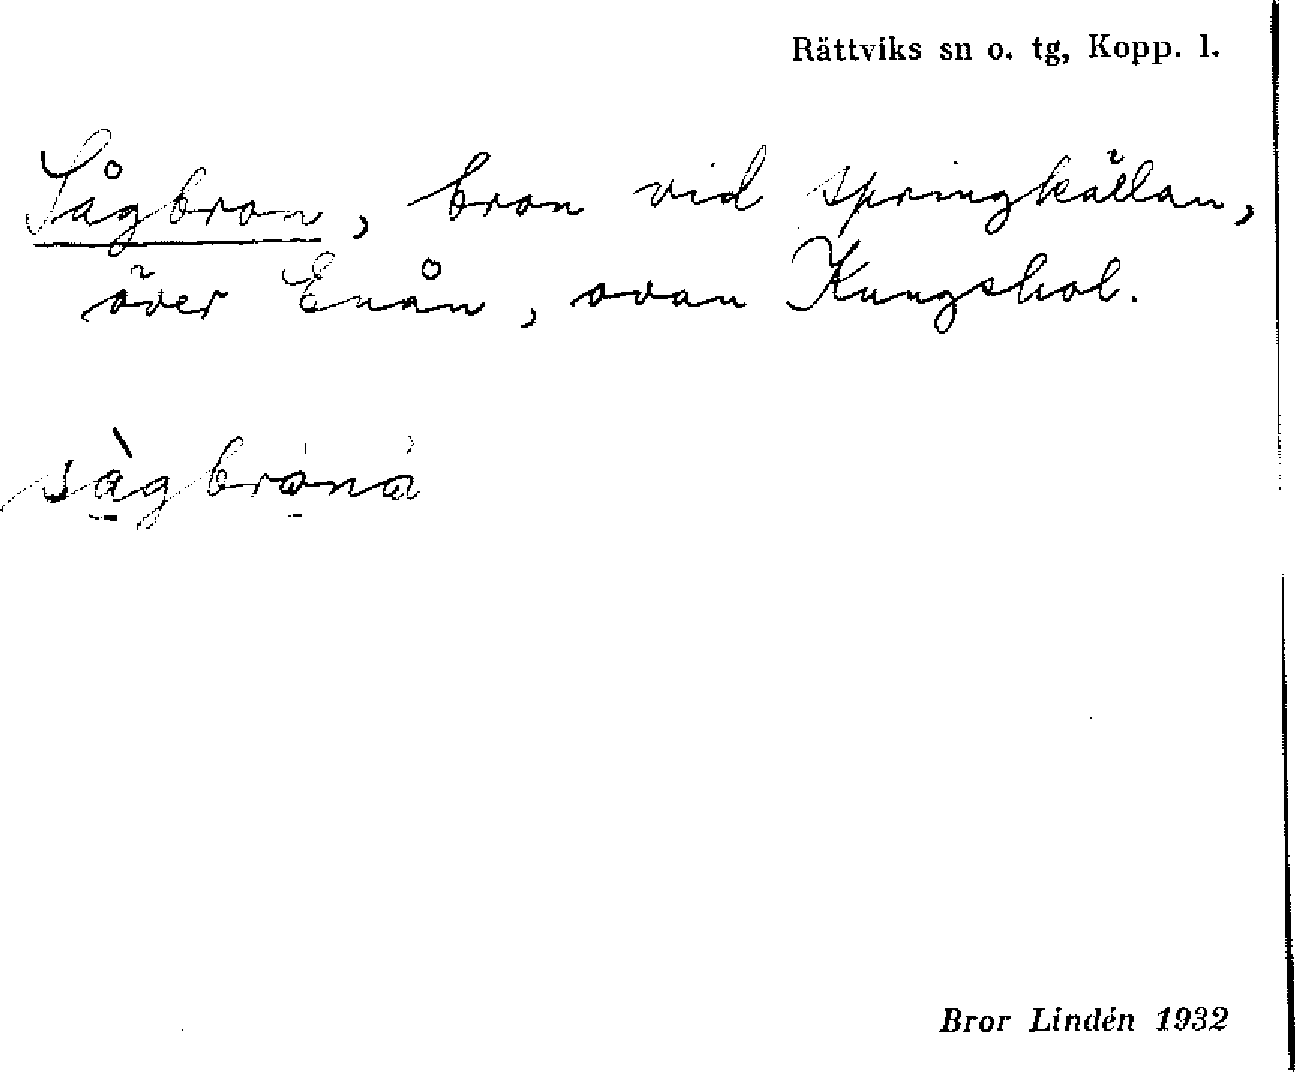 Rättviks sn o. tg, Kopp. l.
Sågbron, bron vid springkällan,
över Enån, ovan Kungshol.
sàgbrona
Bror Lindén 1932